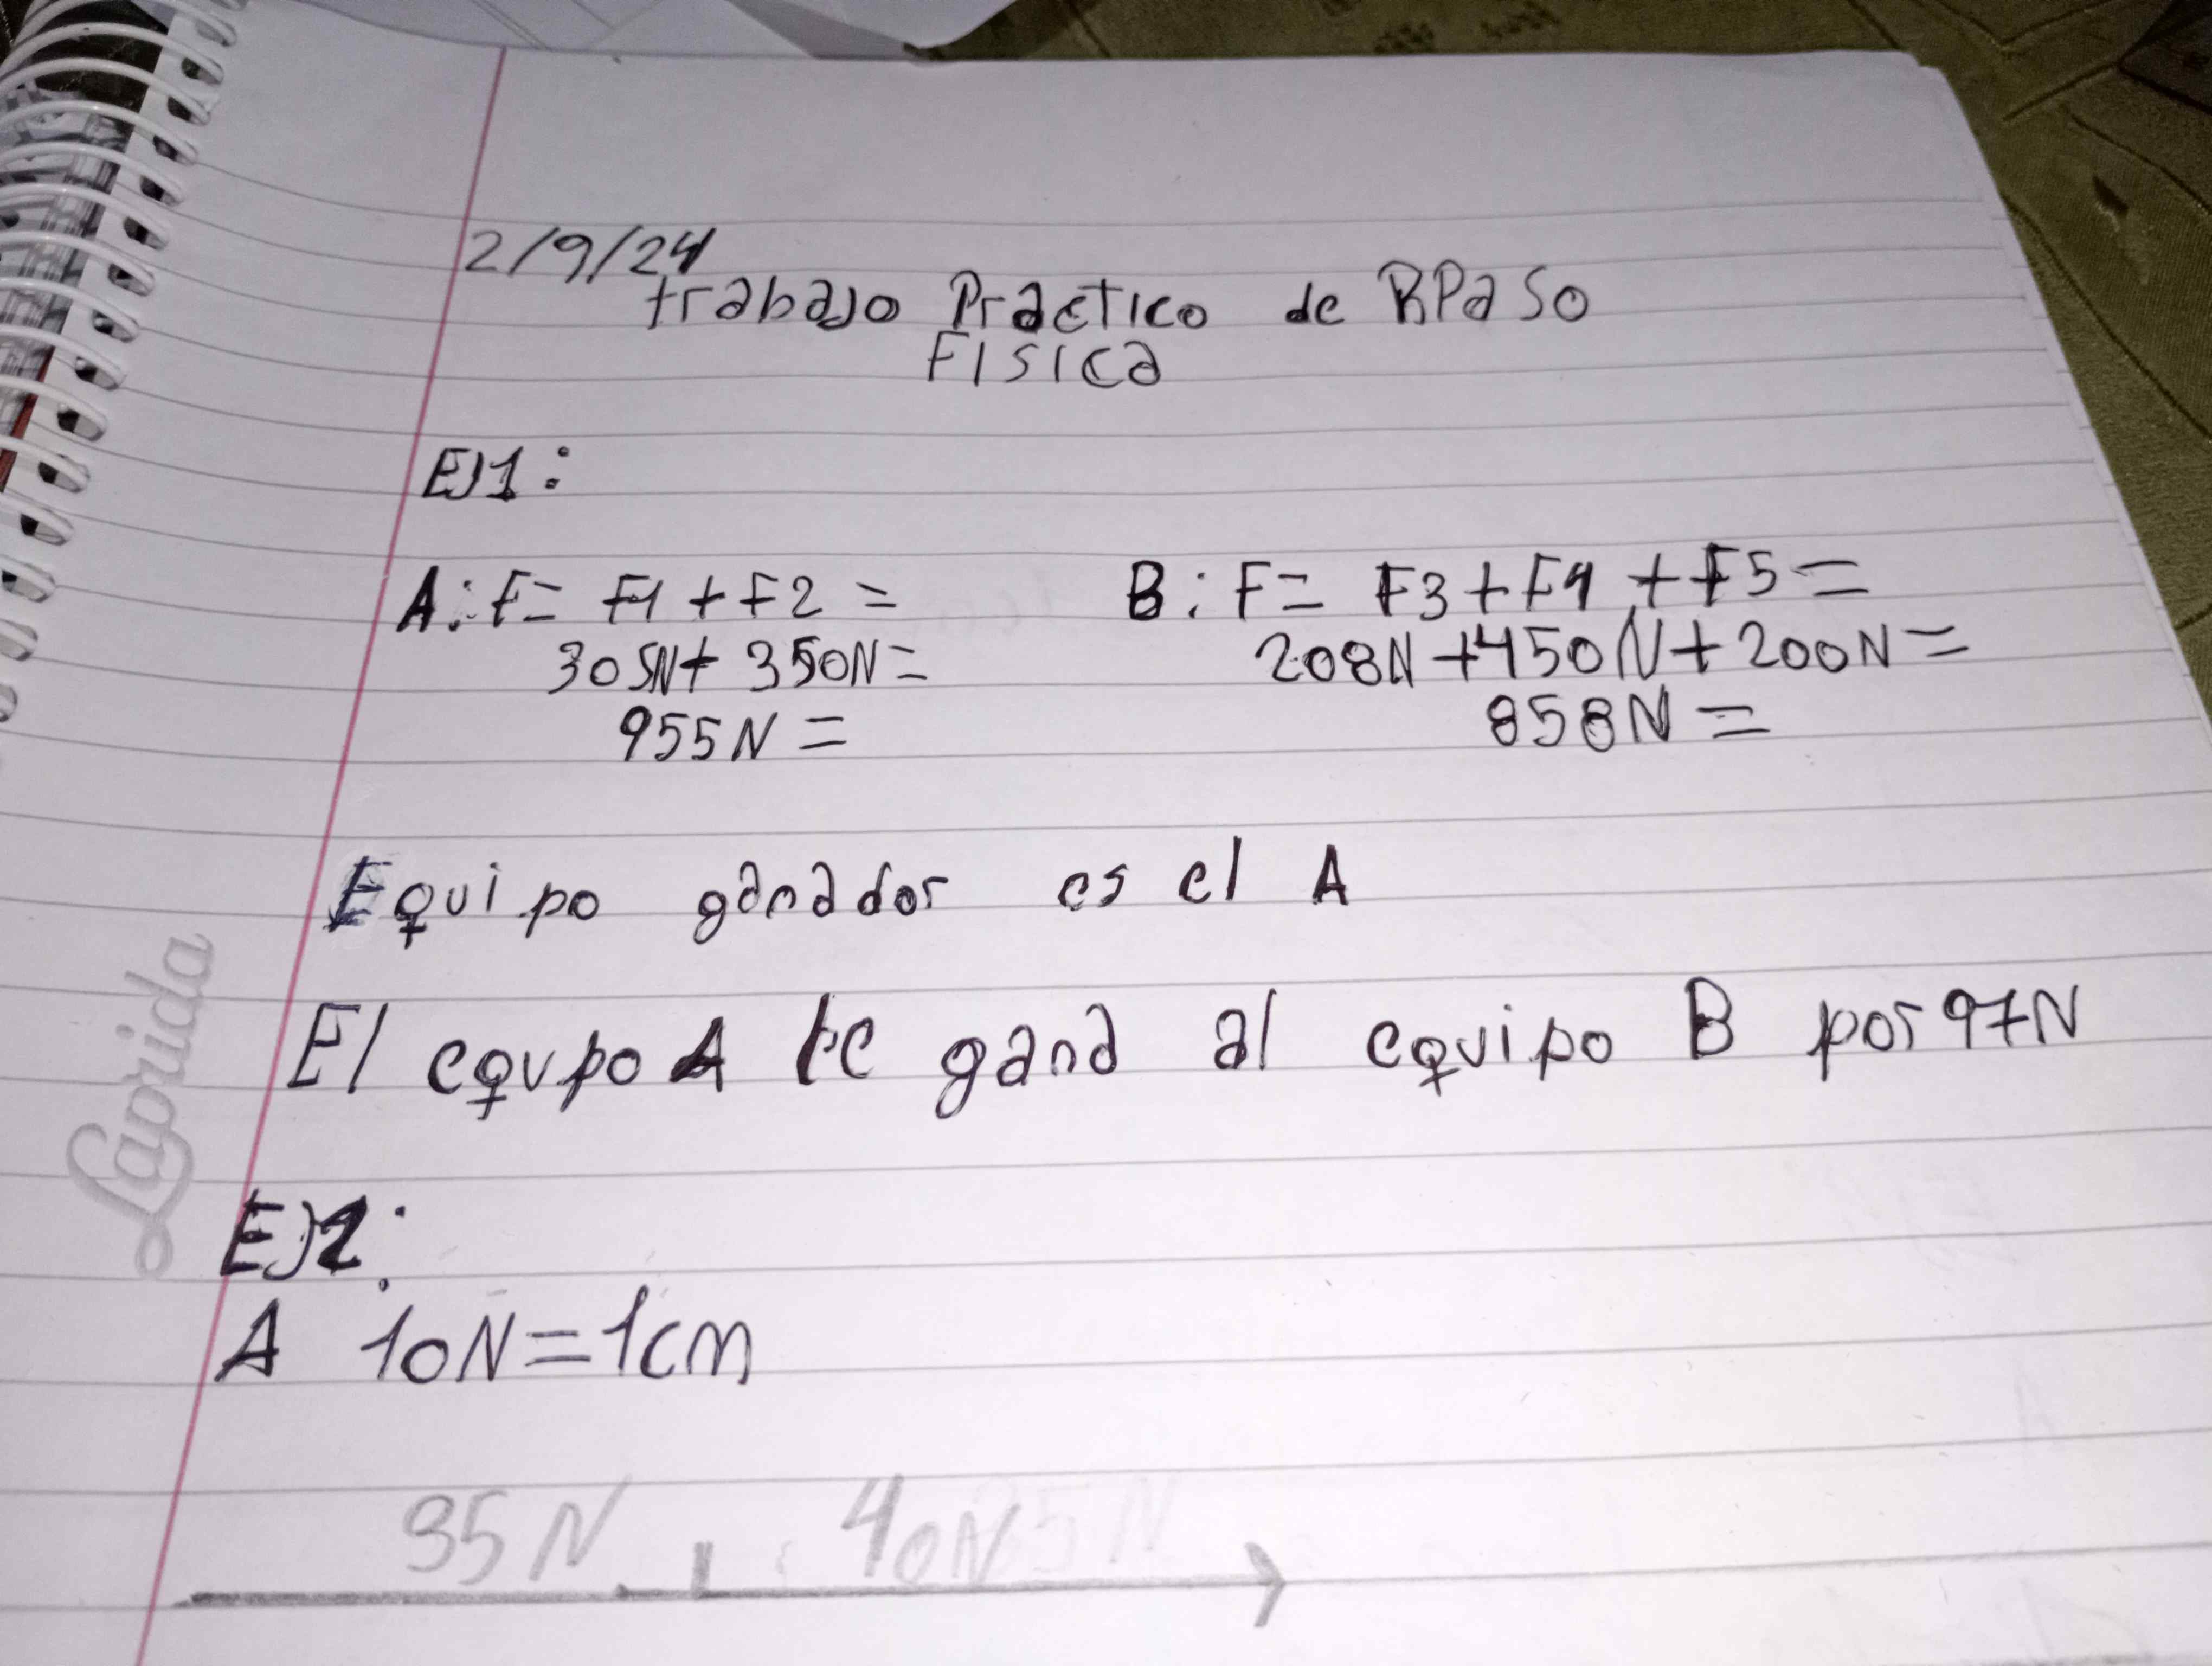 2/9/24
trabajo Practico de RPaso
FISICA
EJ1:
A: F= F1 + F2 =
305N+ 350N=
955N =
B: F= F3+F4 +F5=
208N+450N+200N=
858N =
Equipo ganador es el A
El equpo A le gana al equipo B por 97N
Laprida
EJ2:
A 10N=1cm
35N 40N